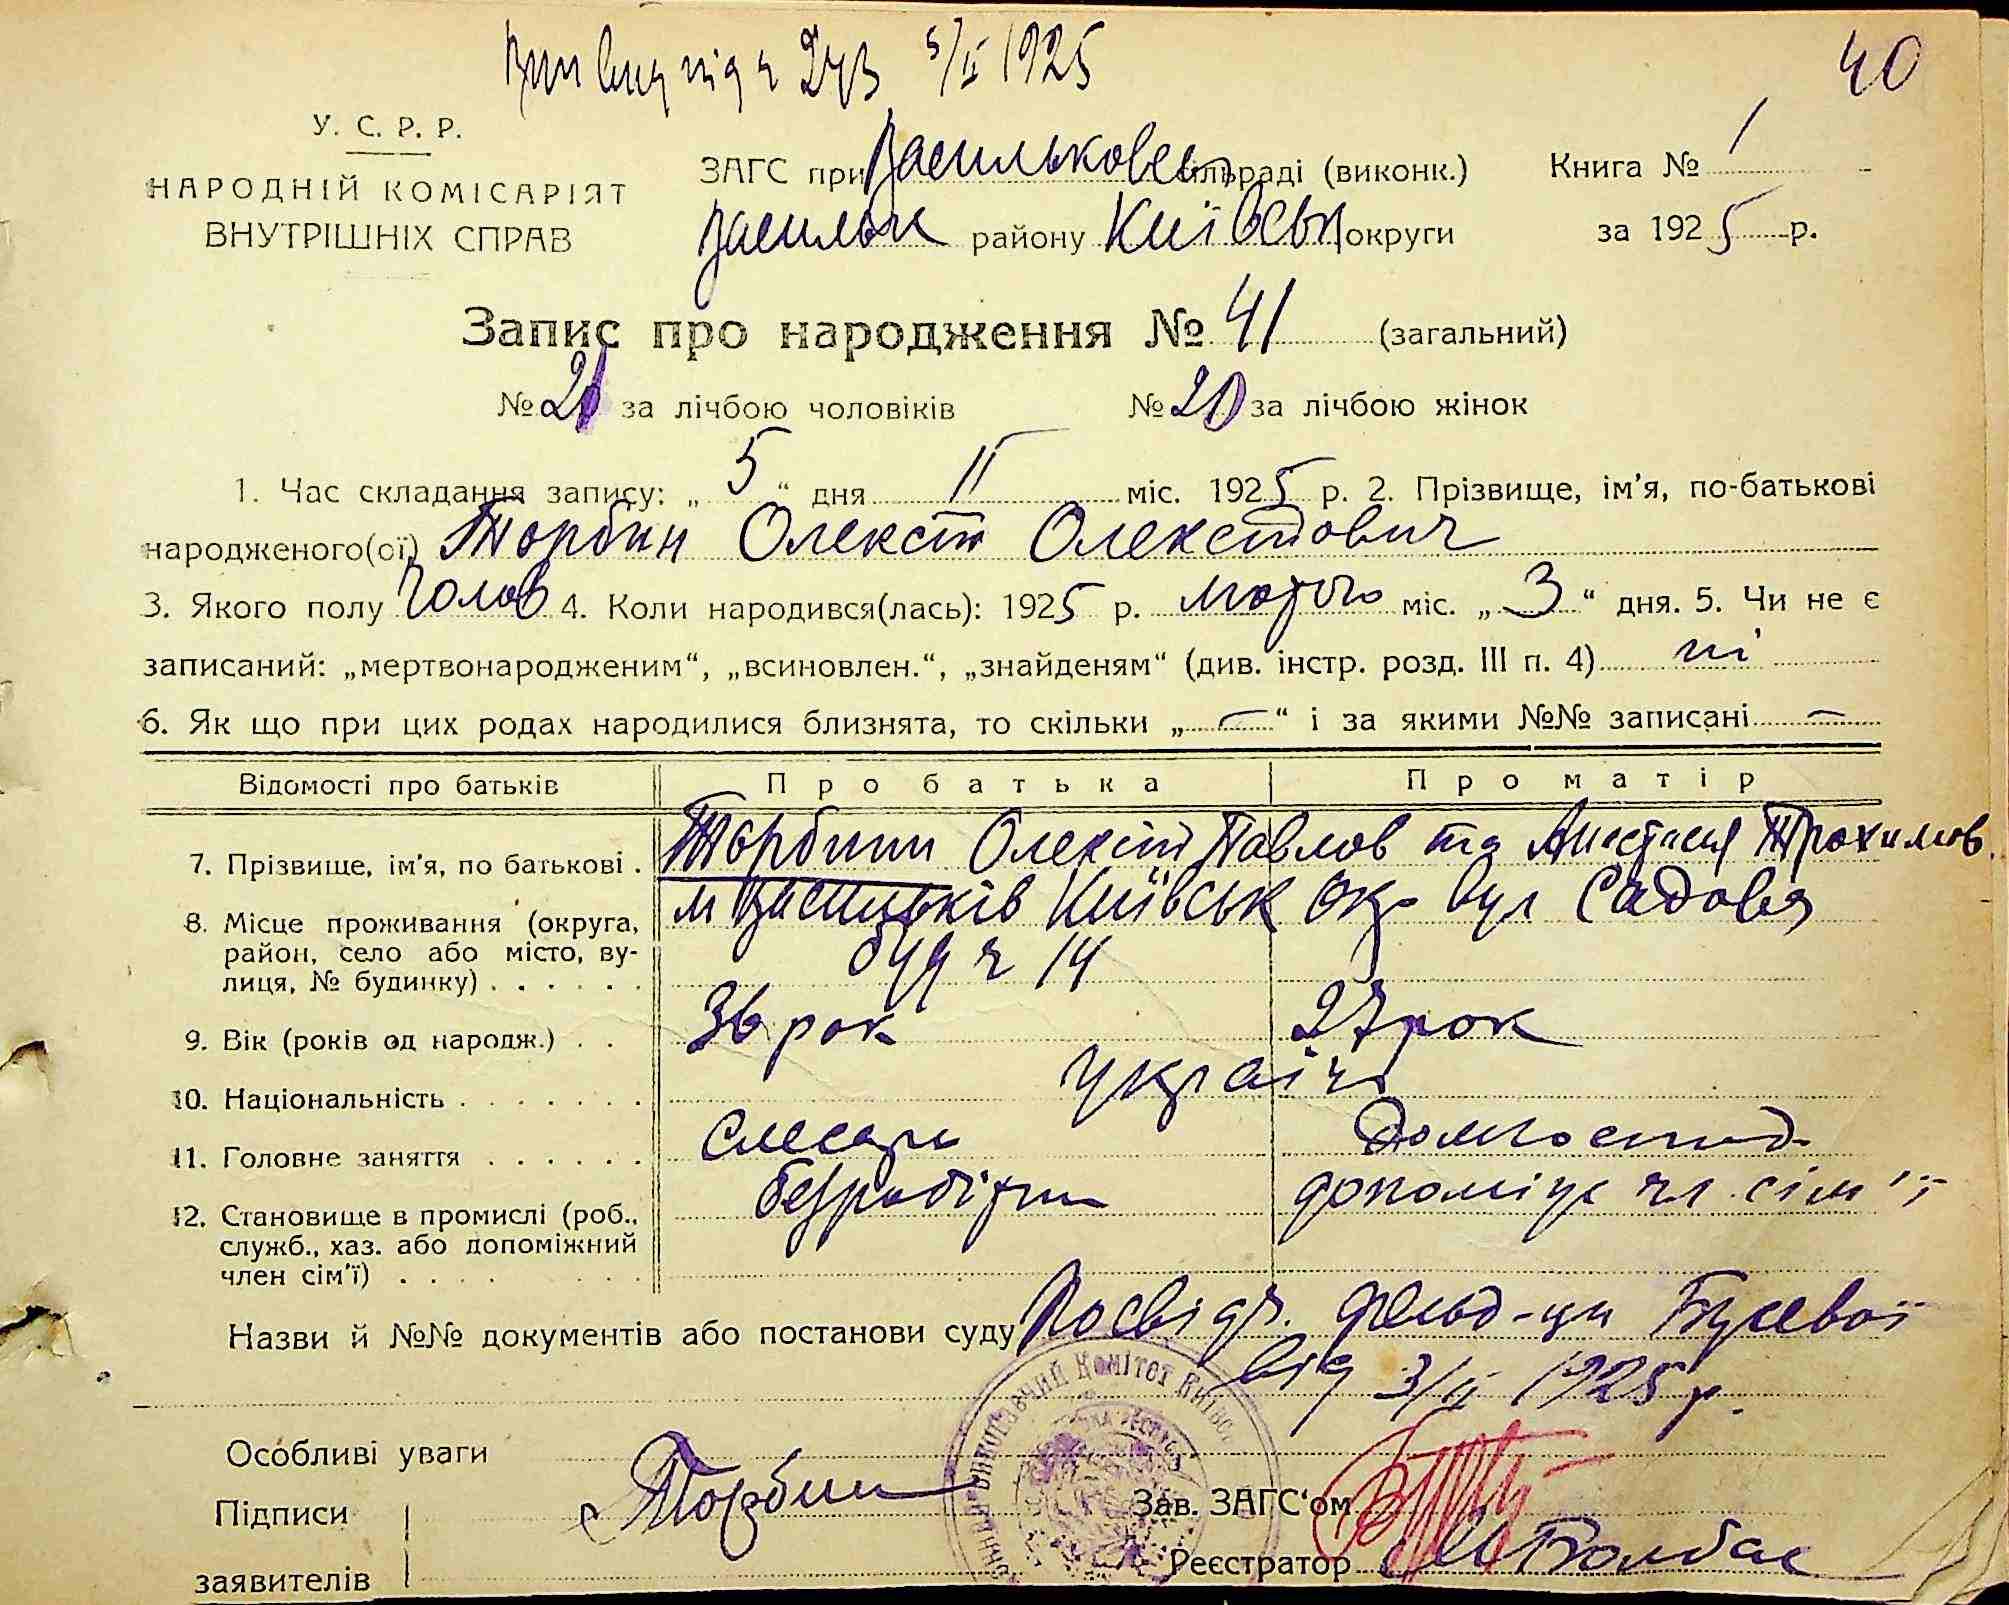 5/II 1925
40
У. С. Р. Р.
НАРОДНІЙ КОМІСАРІЯТ
ВНУТРІШНІХ СПРАВ
ЗАГС при Васильковск сільраді (виконк.) Книга № 1
Васильк району Київськ округи за 1925 р.
Запис про народження № 41 (загальний)
№ 21 за лічбою чоловіків № 20 за лічбою жінок
1. Час складання запису: „ 5 “ дня II міс. 1925 р. 2. Прізвище, ім’я, по-батькові
народженого(ої) Торбин Олексій Олексійович
3. Якого полу Чолов 4. Коли народився(лась): 1925 р. лютого міс. „ 3 “ дня. 5. Чи не є
записаний: „мертвонародженим“, „всиновлен.“, „знайденям“ (див. інстр. розд. III п. 4) ні
6. Як що при цих родах народилися близнята, то скільки „ — “ і за якими №№ записані —
Відомості про батьків Про батька Про матір
7. Прізвище, ім’я, по батькові . Торбини Олексій Павлов та Анастасія Трохимов.
8. Місце проживання (округа, м Васильків Київськ Окр вул Садова
район, село або місто, ву- буд ч 14
лиця, № будинку) . . . . . .
9. Вік (років од народж.) . . 36 рок 27 рок
10. Національність . . . . . . . україн
11. Головне заняття . . . . . . Слесарь Домгоспод
12. Становище в промислі (роб., безробітн допоміж чл. сім’ї
служб., хаз. або допоміжний
член сім’ї) . . . .
Назви й №№ документів або постанови суду Посвідч. фельд-ци Бусевої
від 3/II 1925 р.
Особливі уваги
Підписи Торбин Зав. ЗАГС‘ом
заявителів Реєстратор М Болбас